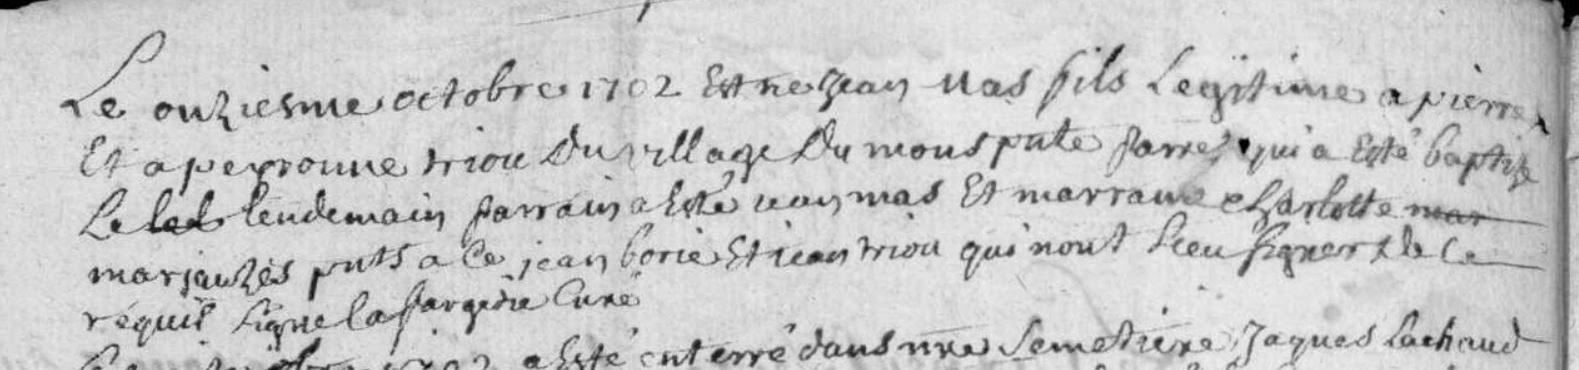 Le onziesme octobre 1702 Est ne Jean Mas fils Legitime a pierre
Et a peyronne triou Du village Du mons pnte parre qui a Esté baptize
Le led lendemain parrain a Esté jean mas Et marraine charlotte mar
marjauzes pnts a ce jean borie Et jean triou qui nont sceu signer de ce
requis signe Lafargedie Curé
1702 a Esté enterré dans nre semetiere Jaques Lachaud